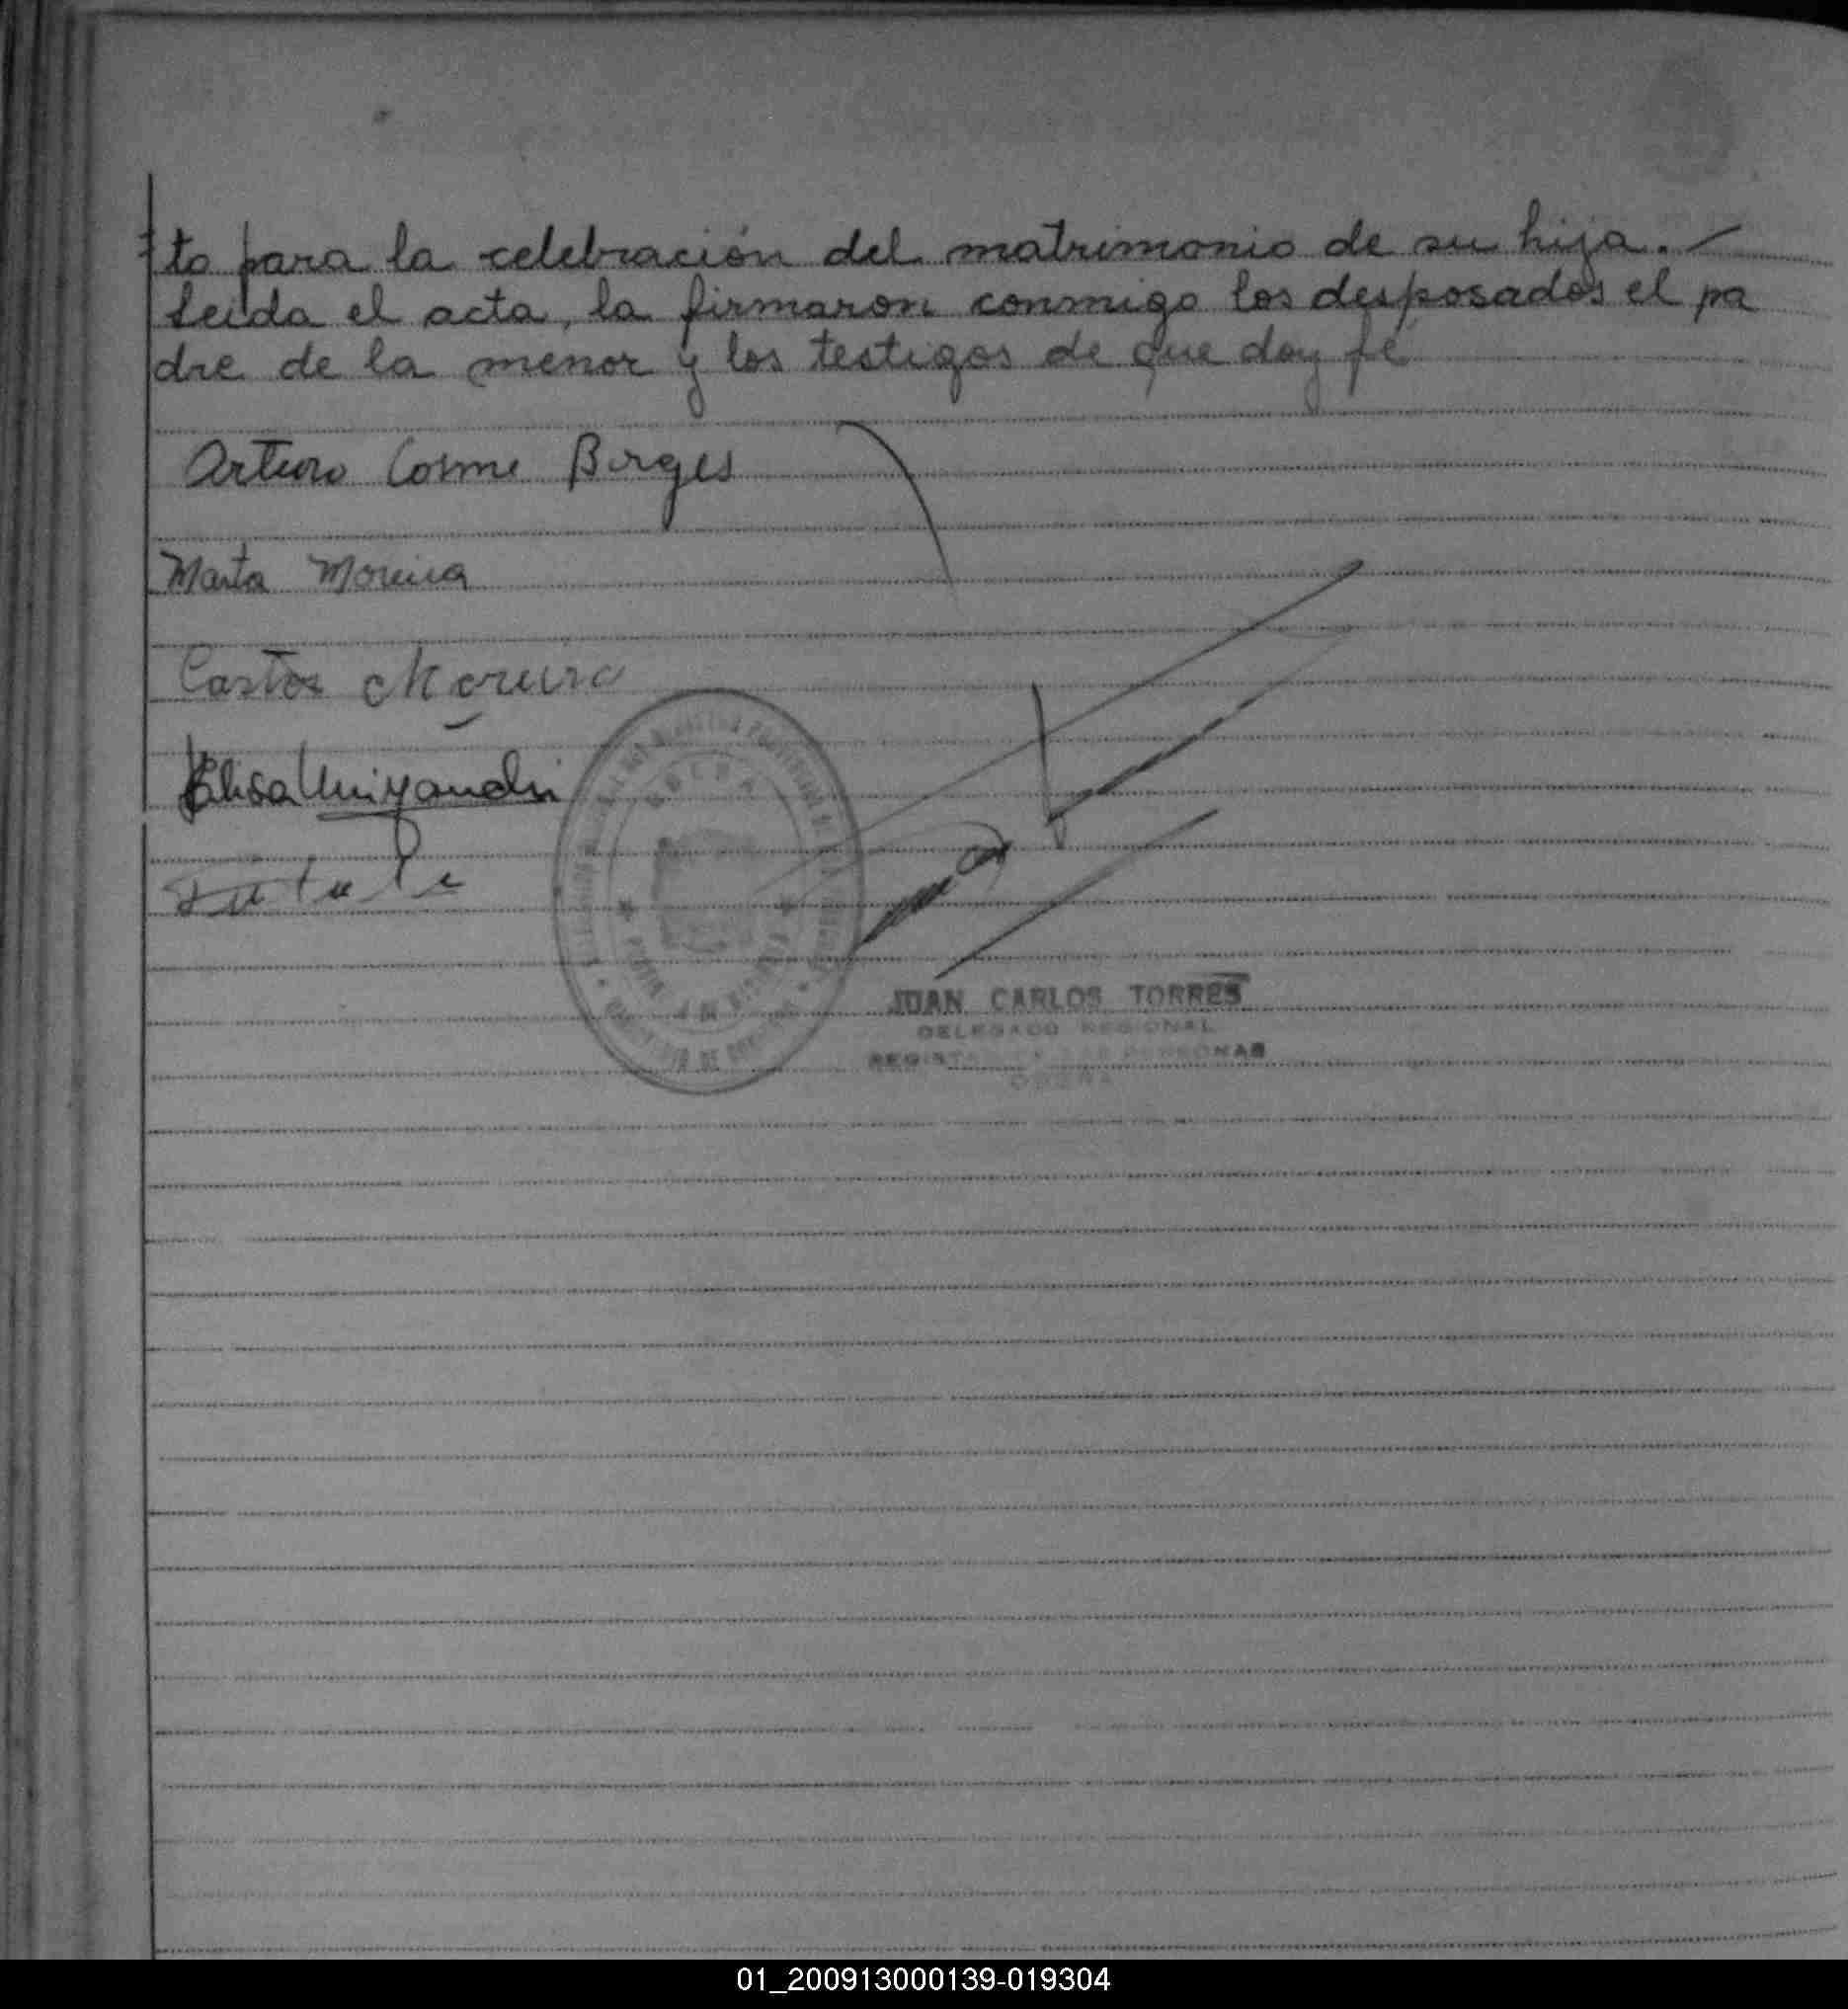 to para la celebración del matrimonio de su hija. -
Leida el acta, la firmaron conmigo los desposados el pa
dre de la menor y los testigos de que doy fé
Arturo Cosme Borges
Marta Moreira
Castor Moreira
Elisa
OBERA
JUAN CARLOS TORRES
DELEGADO REGIONAL
REGISTRO DE LAS PERSONAS
OBERA
01_200913000139-019304